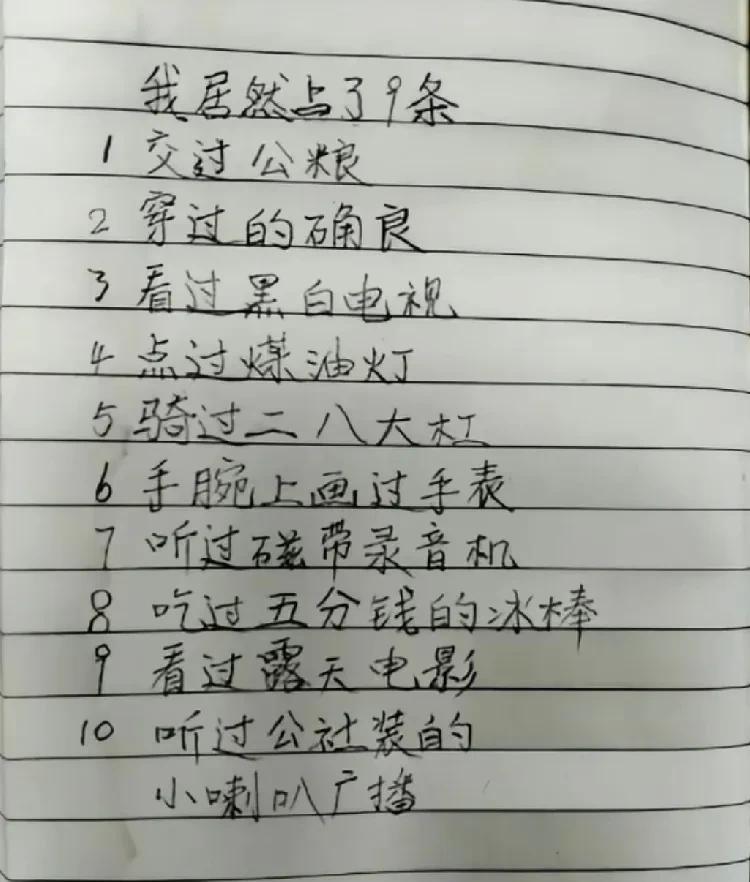 我居然占了9条
1 交过公粮
2 穿过的确良
3 看过黑白电视
4 点过煤油灯
5 骑过二八大杠
6 手腕上画过手表
7 听过磁带录音机
8 吃过五分钱的冰棒
9 看过露天电影
10 听过公社装的
小喇叭广播